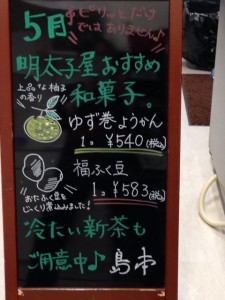 5月
ピリッとだけ
ではありません♪
明太子屋おすすめ
和菓子。
上品な柚子
の香り
ゆず巻ようかん
1コ ¥540(税込)
福ふく豆
1コ ¥583(税込)
おたふく豆を
じっくり煮込みました!
冷たい新茶も
ご用意中♪ 島本